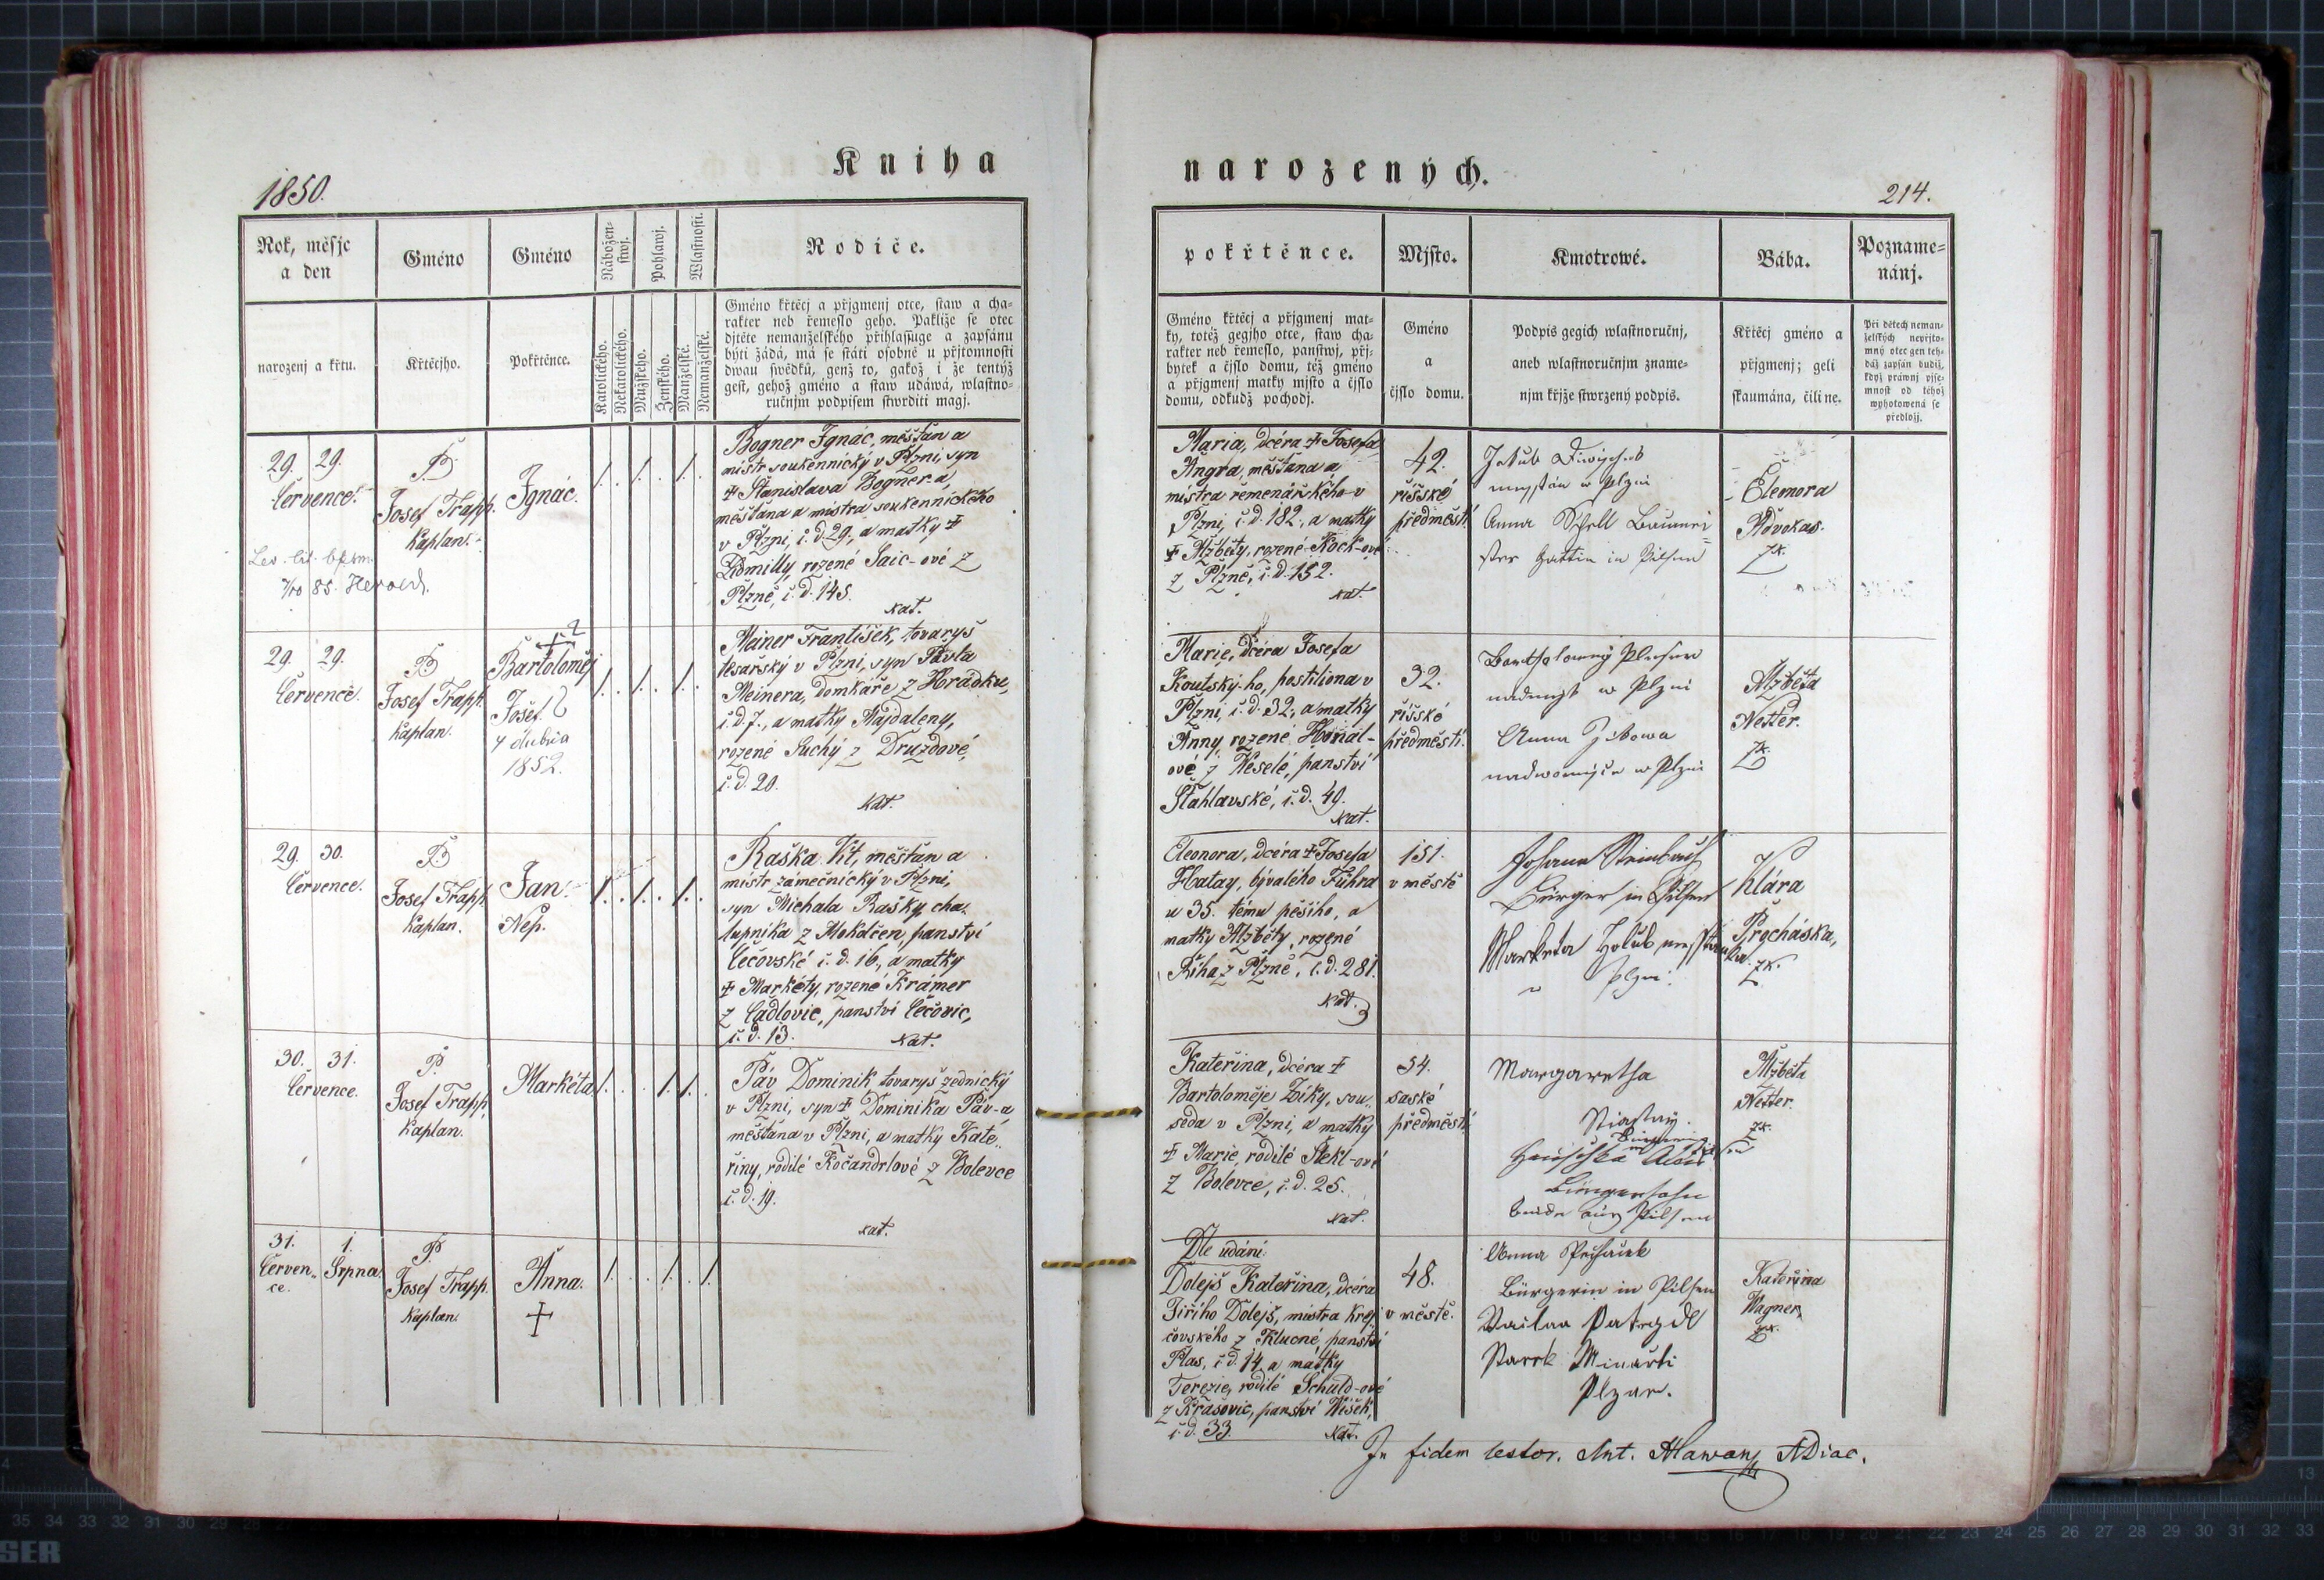 Kniha
1850.
Rok, měsjc
a den
Gméno
Gméno
Nábožen-
stwj.
Pohlawj.
Wlastnosti.
Rodiče.
narozenj a křtu.
Křtěcjho.
Pokřtěnce.
Katolického.
Nekatolického.
Mužského.
Ženského.
Manželské.
Nemanželské.
Gméno křtěcj a přjgmenj otce, staw a cha=
rakter neb řemeslo geho. Pakliže se otec
djtěte nemanželského přihlassuge a zapsánu
býti žádá, má se státi osobně u přjtomnosti
dwau swědků, genž to, gakož i že tentýž
gest, gehož gméno a staw udáwá, wlastno=
ručnjm podpisem stwrditi magj.
29. 29.
Července.
P.
Josef Trapp.
Kaplan.
Ignác.
1. . 1. . 1. .
Bogner Ignác, měšťan a
mistr soukennický v Plzni, syn
✝ Stanislava Bognera,
měšťana a mistra soukennického
v Plzni, č. d. 29., a matky ✝
Lidmilly, rozené Saic-ové z
Plzně, č. d. 145.
kat.
85. Herold.
29. 29.
Července.
P.
Josef Trapp.
Kaplan.
Bartoloměj
Josef
4 dubna
1852.
1. . 1. . 1. .
Meiner František, tovaryš
tesařský v Plzni, syn Pavla
Meinera, domkáře z Hrádku,
č. d. 7., a matky Majdaleny,
rozené Suchý z Druzdové,
č. d. 20.
kat.
29. 30.
Července.
P.
Josef Trapp.
Kaplan.
Jan
Nep.
1. . 1. . 1. .
Raška Vít, měšťan a
mistr zámečnický v Plzni,
syn Michala Rašky, cha-
lupníka z Mokdčen, panství
Čečovské č. d. 16., a matky
✝ Markéty, rozené Krámer
z Čadlovic, panství Čečovic,
č. d. 13.
kat.
30. 31.
Července.
P.
Josef Trapp,
Kaplan.
Markéta
1. . . 1. 1. .
Páv Dominik, tovaryš zednický
v Plzni, syn ✝ Dominika Páv-a,
měšťana v Plzni, a matky Kate-
řiny, rodilé Kočandrlové z Bolevce
č. d. 19.
kat.
31. 1.
Červen- Srpna.
ce.
P.
Josef Trapp.
Kaplan.
Anna.
✝
1. . . 1. . 1.
narozených.
214.
pokřtěnce.
Mjsto.
Kmotrowé.
Bába.
Pozname=
nánj.
Gméno křtěcj a přjgmenj mat=
ky, totéž gegjho otce, staw cha=
rakter neb řemeslo, panstwj, přj=
bytek a čjslo domu, též gméno
a přjgmenj matky mjsto a čjslo
domu, odkudž pochodj.
Gméno
a
čjslo domu.
Podpis gegich wlastnoručnj,
aneb wlastnoručnjm zname=
njm křjže stwrzený podpis.
Křtěcj gméno a
přjgmenj; geli
skaumána, čili ne.
Při dětech neman=
želských nepřjto=
mný otec gen teh=
dáž zapsán budiž,
když práwnj pjse=
mnost od téhož
wyhotowená se
předložj.
Maria, dcéra ✝ Josefa
Angra, měšťana a
mistra řemenářského v
Plzni, č. d. 182., a matky
✝ Alžběty, rozené Kock-ové
z Plzně, č. d. 152.
kat.
42.
říšské
předměstí.
Jakub
w Plzni
Anna Schell Baumei=
ster Gattin in Pilsen
Eleonora
Advokas.
zk.
Marie, dcéra Josefa
Koutský-ho, postiliona v
Plzni, č. d. 32., a matky
Anny rozené Honal-
ové z Weselé, panství
Šťáhlavské, č. d. 49.
kat.
32.
říšské
předměstí.
w Plzni
Anna
w Plzni
Alžběta
Netter.
zk.
Eleonora, dcéra ✝ Josefa
Hatay, bývalého Führa
u 35. tému pěšího, a
matky Alžběty, rozené
Říha z Plzně, č. d. 281.
kat.
151.
v městě
Johann Steinbach
Bürger in Pilsen
Marketa Holub
Plzni.
Klára
Procháska,
zk.
Kateřina, dcéra ✝
Bartoloměje Ziky, sou-
seda v Plzni, a matky
✝ Marie, rodilé Štekl-ové
z Bolevce, č. d. 25.
kat.
54.
saské
předměstí
Margaretha
Bürgerssohn
beide aus Pilsen
Alžběta
Netter.
zk.
Dle udání:
Dolejš Kateřina, dcéra
Jiřího Dolejš, mistra krej-
čovského z Klucné, panství
Plas, č. d. 14, a matky
Terezie, rodilé Schuld-ové
z Krašovic, panství Wíšek,
č. d. 33.
kat.
48.
v městě.
Anna
Bürgerin in Pilsen
Kateřina
Wagner,
zk.
In fidem testor. Ant. Hlawan, ADiac.